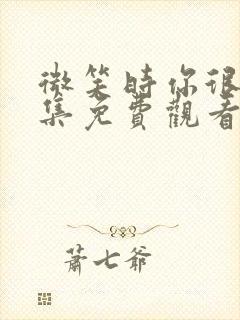 微笑時你很
集免費觀看
蕭七爺